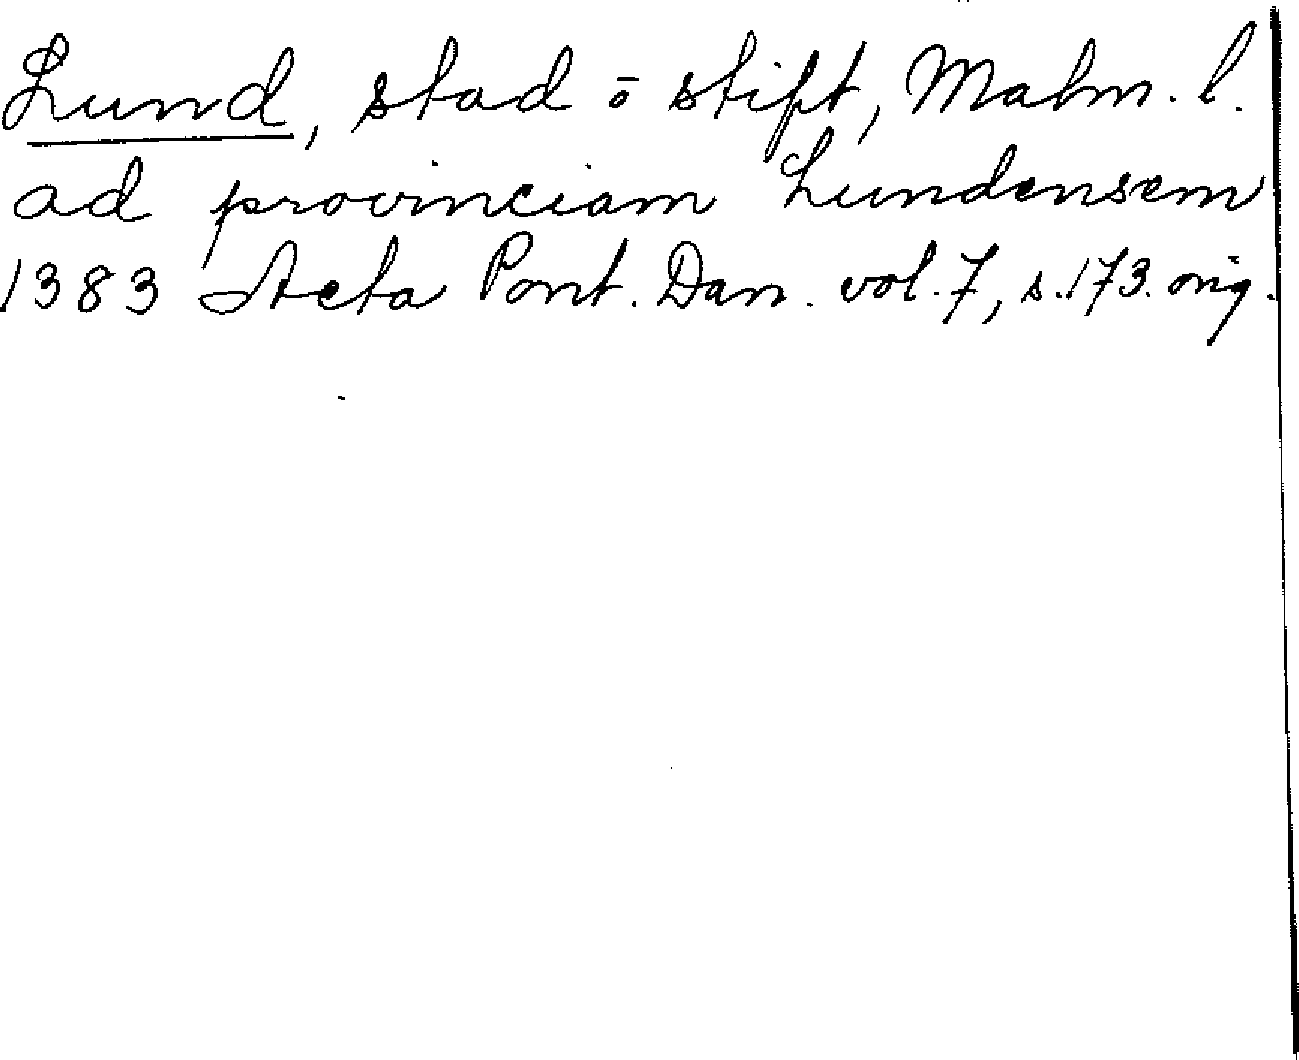 Lund, stad o stift, Malm. l.
ad provinciam Lundensem
1383 Acta Pont. Dan. vol. 7, s. 173. orig.